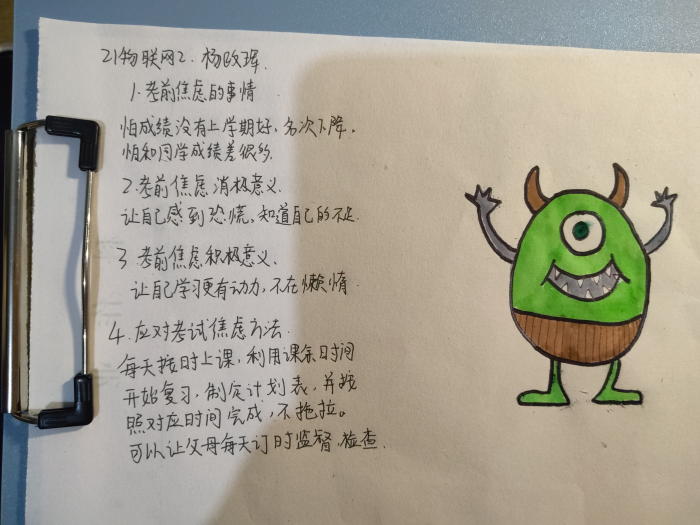 21物联网2. 杨政珲.
1.考前焦虑的事情
怕成绩没有上学期好,名次下降。
怕和同学成绩差很多.
2.考前焦虑消极意义.
让自己感到恐慌,知道自己的不足.
3 考前焦虑积极意义.
让自己学习更有动力,不在懒惰.
4.应对考试焦虑方法.
每天按时上课,利用课余时间
开始复习,制定计划表,并按
照对应时间完成,不拖拉。
可以让父母每天订时监督,检查.